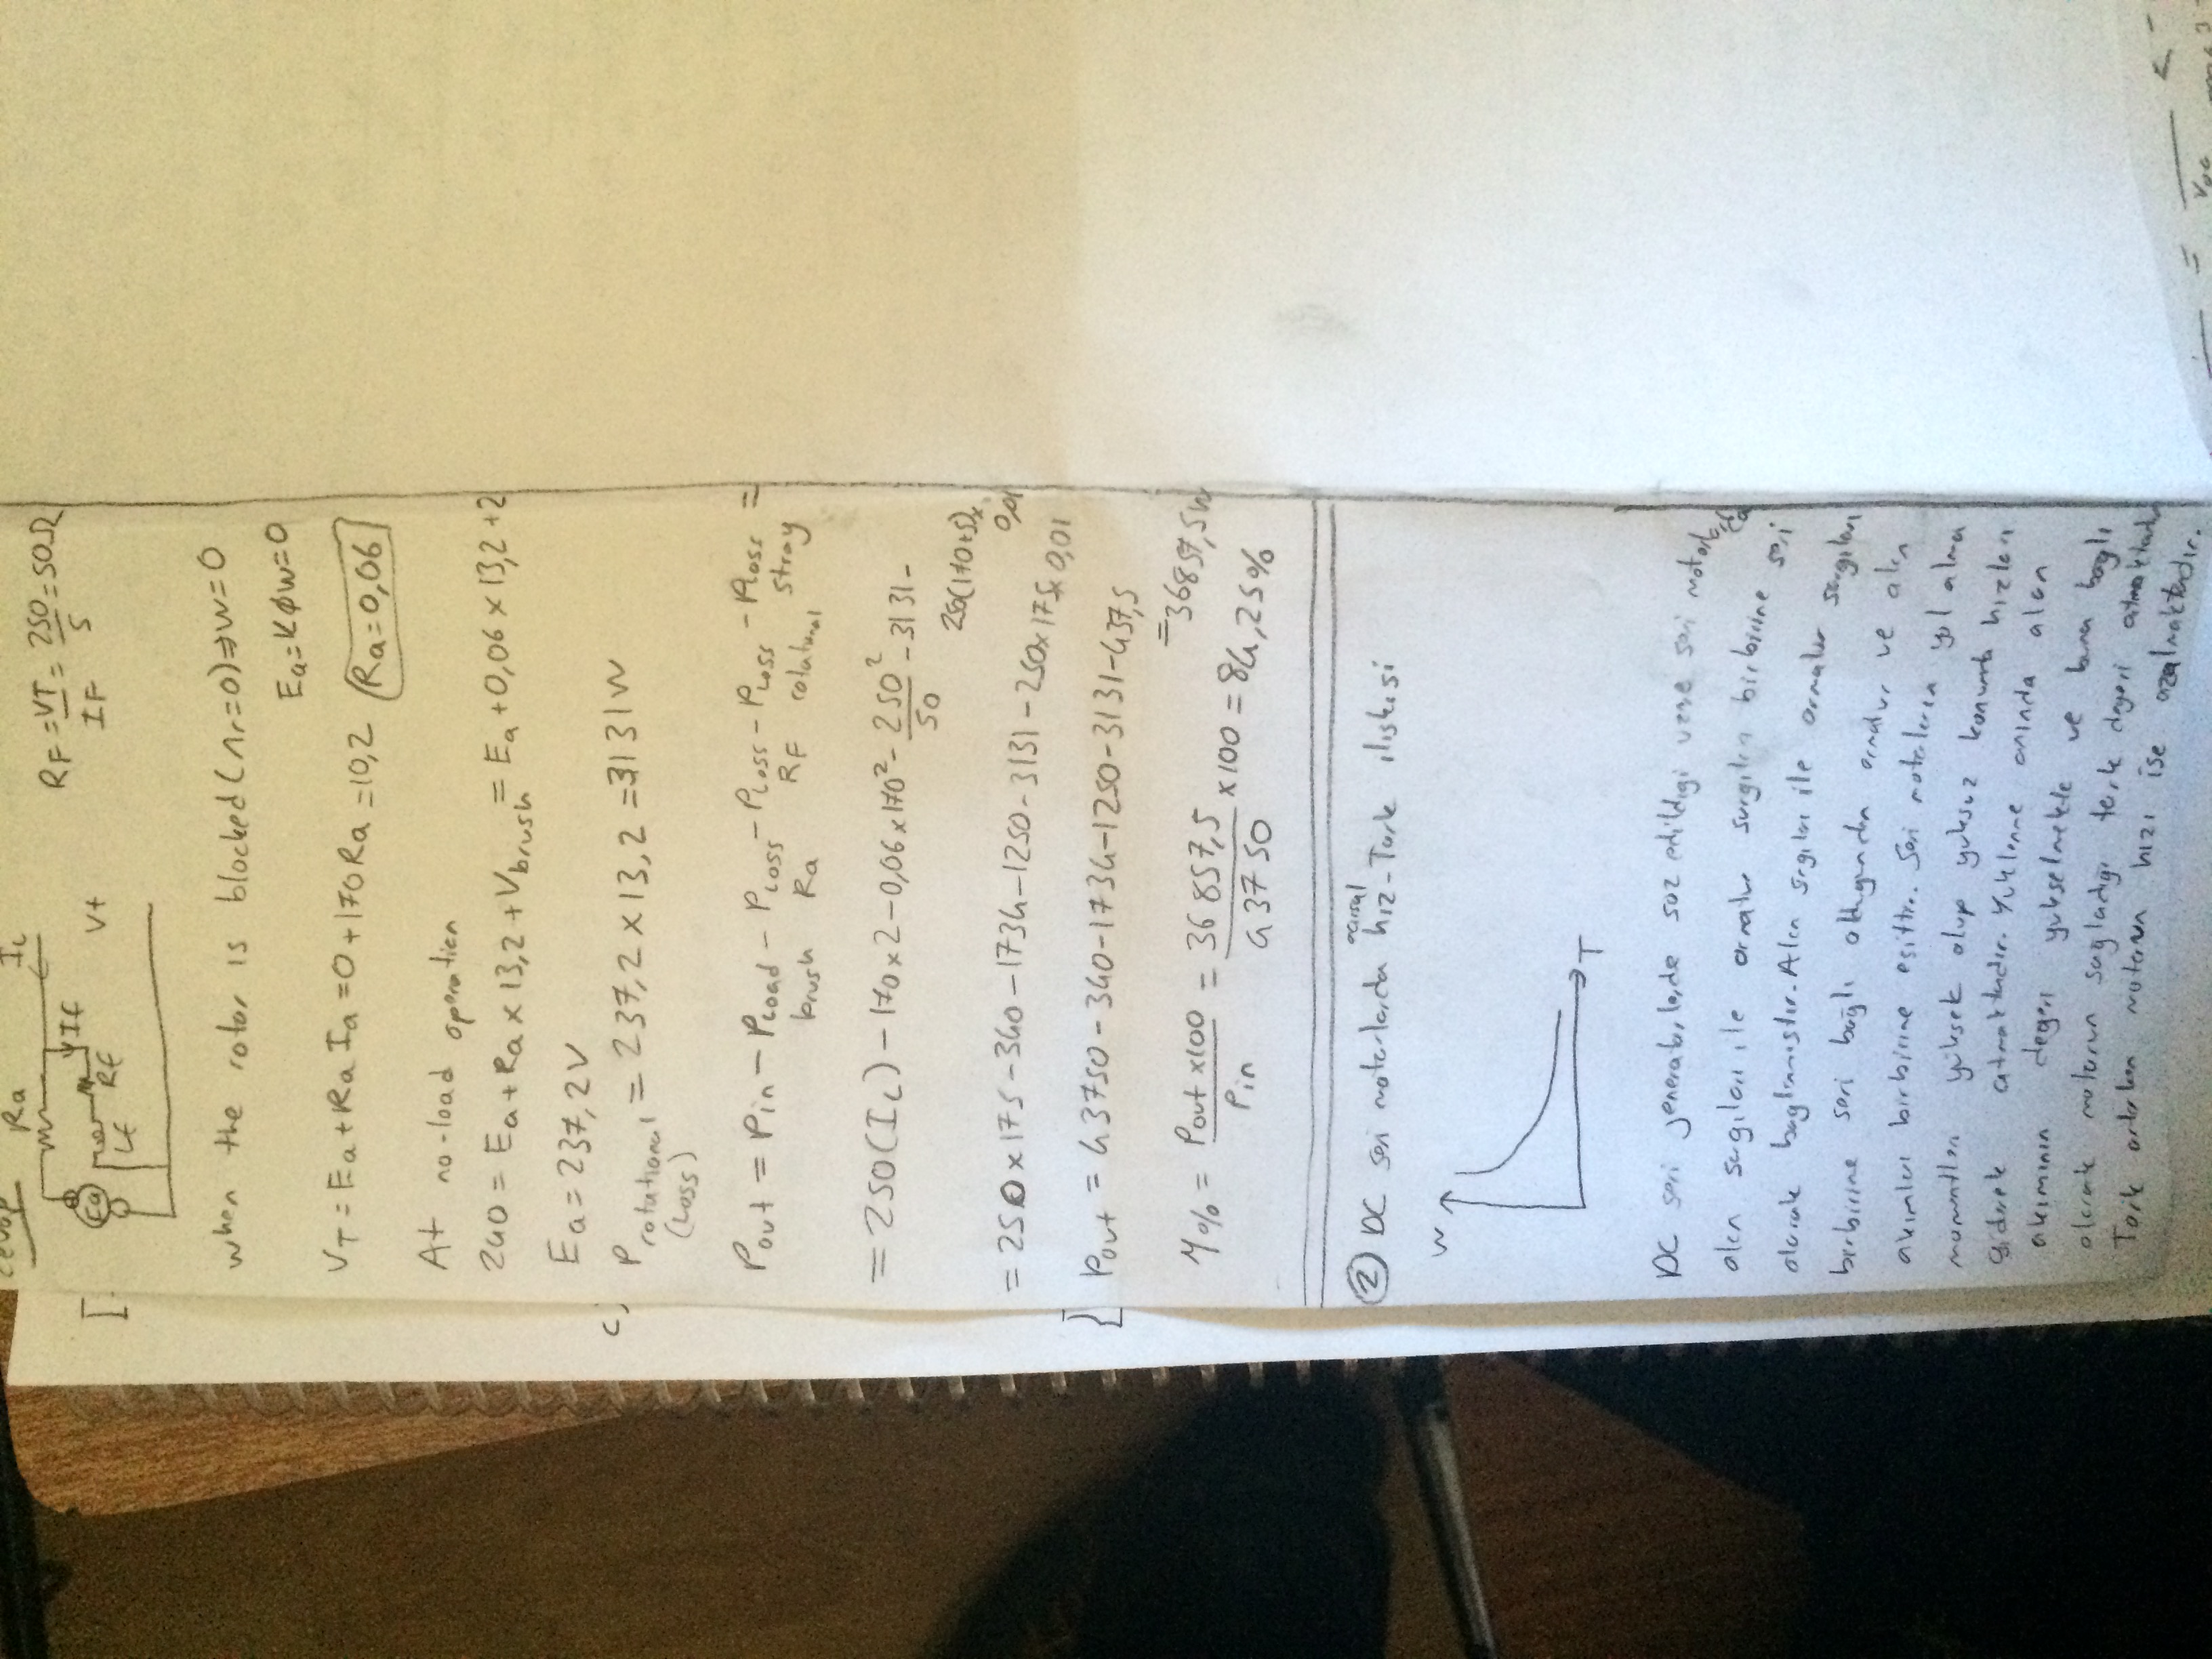 cevap
Ra
IL
Ea
LF
RF
IF
Vt
RF = VT = 250 = 50Ω
IF 5
when the rotor is blocked (nr=0) ⇒ w=0
Ea = kϕw = 0
VT = Ea + Ra Ia = 0 + 170 Ra = 10,2 Ra = 0,06
At no-load operation
240 = Ea + Ra x 13,2 + Vbrush = Ea + 0,06 x 13,2 + 2
Ea = 237,2 V
c,
P rotational = 237,2 x 13,2 = 3131 W
(Loss)
Pout = Pin - PLoad - PLoss - PLoss - PLoss - PLoss =
brush Ra RF rotational stray
= 250 (IL) - 170 x 2 - 0,06 x 170² - 250² - 3131 -
50
250(170+5)x
0,01
= 250 x 175 - 340 - 1734 - 1250 - 3131 - 250 x 175 x 0,01
Pout = 43750 - 340 - 1734 - 1250 - 3131 - 437,5
= 36857,5 W
η% = Pout x100 = 36857,5 x 100 = 84,25%
Pin 43750
② DC seri motorlarda açısal hız - Tork ilişkisi
w
T
DC seri jeneratörlerde söz edildiği üzere seri motorlarda
alan sargıları ile armatur sargıları birbirine seri
olarak bağlanmıştır. Alan sargıları ile armatur sargıları
birbirine seri bağlı olduğundan armatur ve alan
akımları birbirine eşittir. Seri motorların yol alma
momentleri yüksek olup yüksüz konumda hızları
giderek artmaktadır. Yüklenme anında alan
akımının değeri yükselmekte ve buna bağlı
olarak motorun sağladığı tork değeri artmaktadır.
Tork artarken motorun hızı ise azalmaktadır.